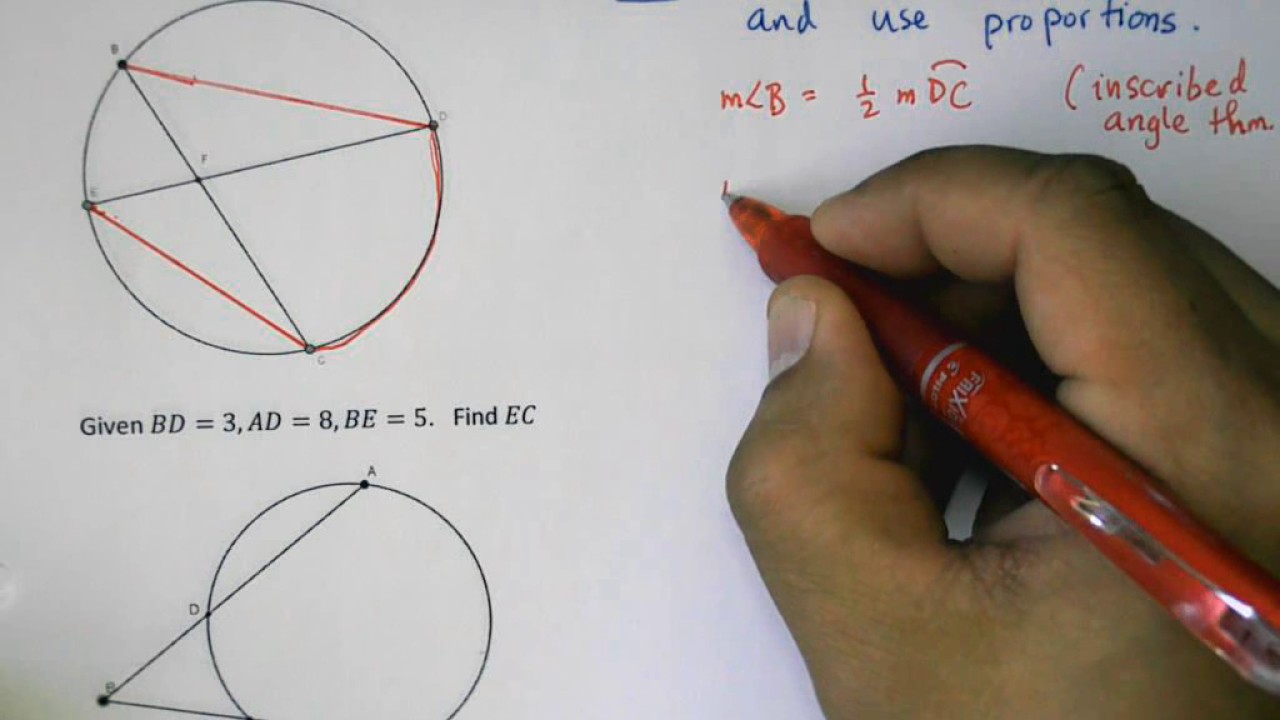 and use proportions.
m∠B = 1/2 m DC (inscribed
angle thm.
B
D
F
E
C
Given BD = 3, AD = 8, BE = 5. Find EC
A
D
B
FRIXION
PILOT